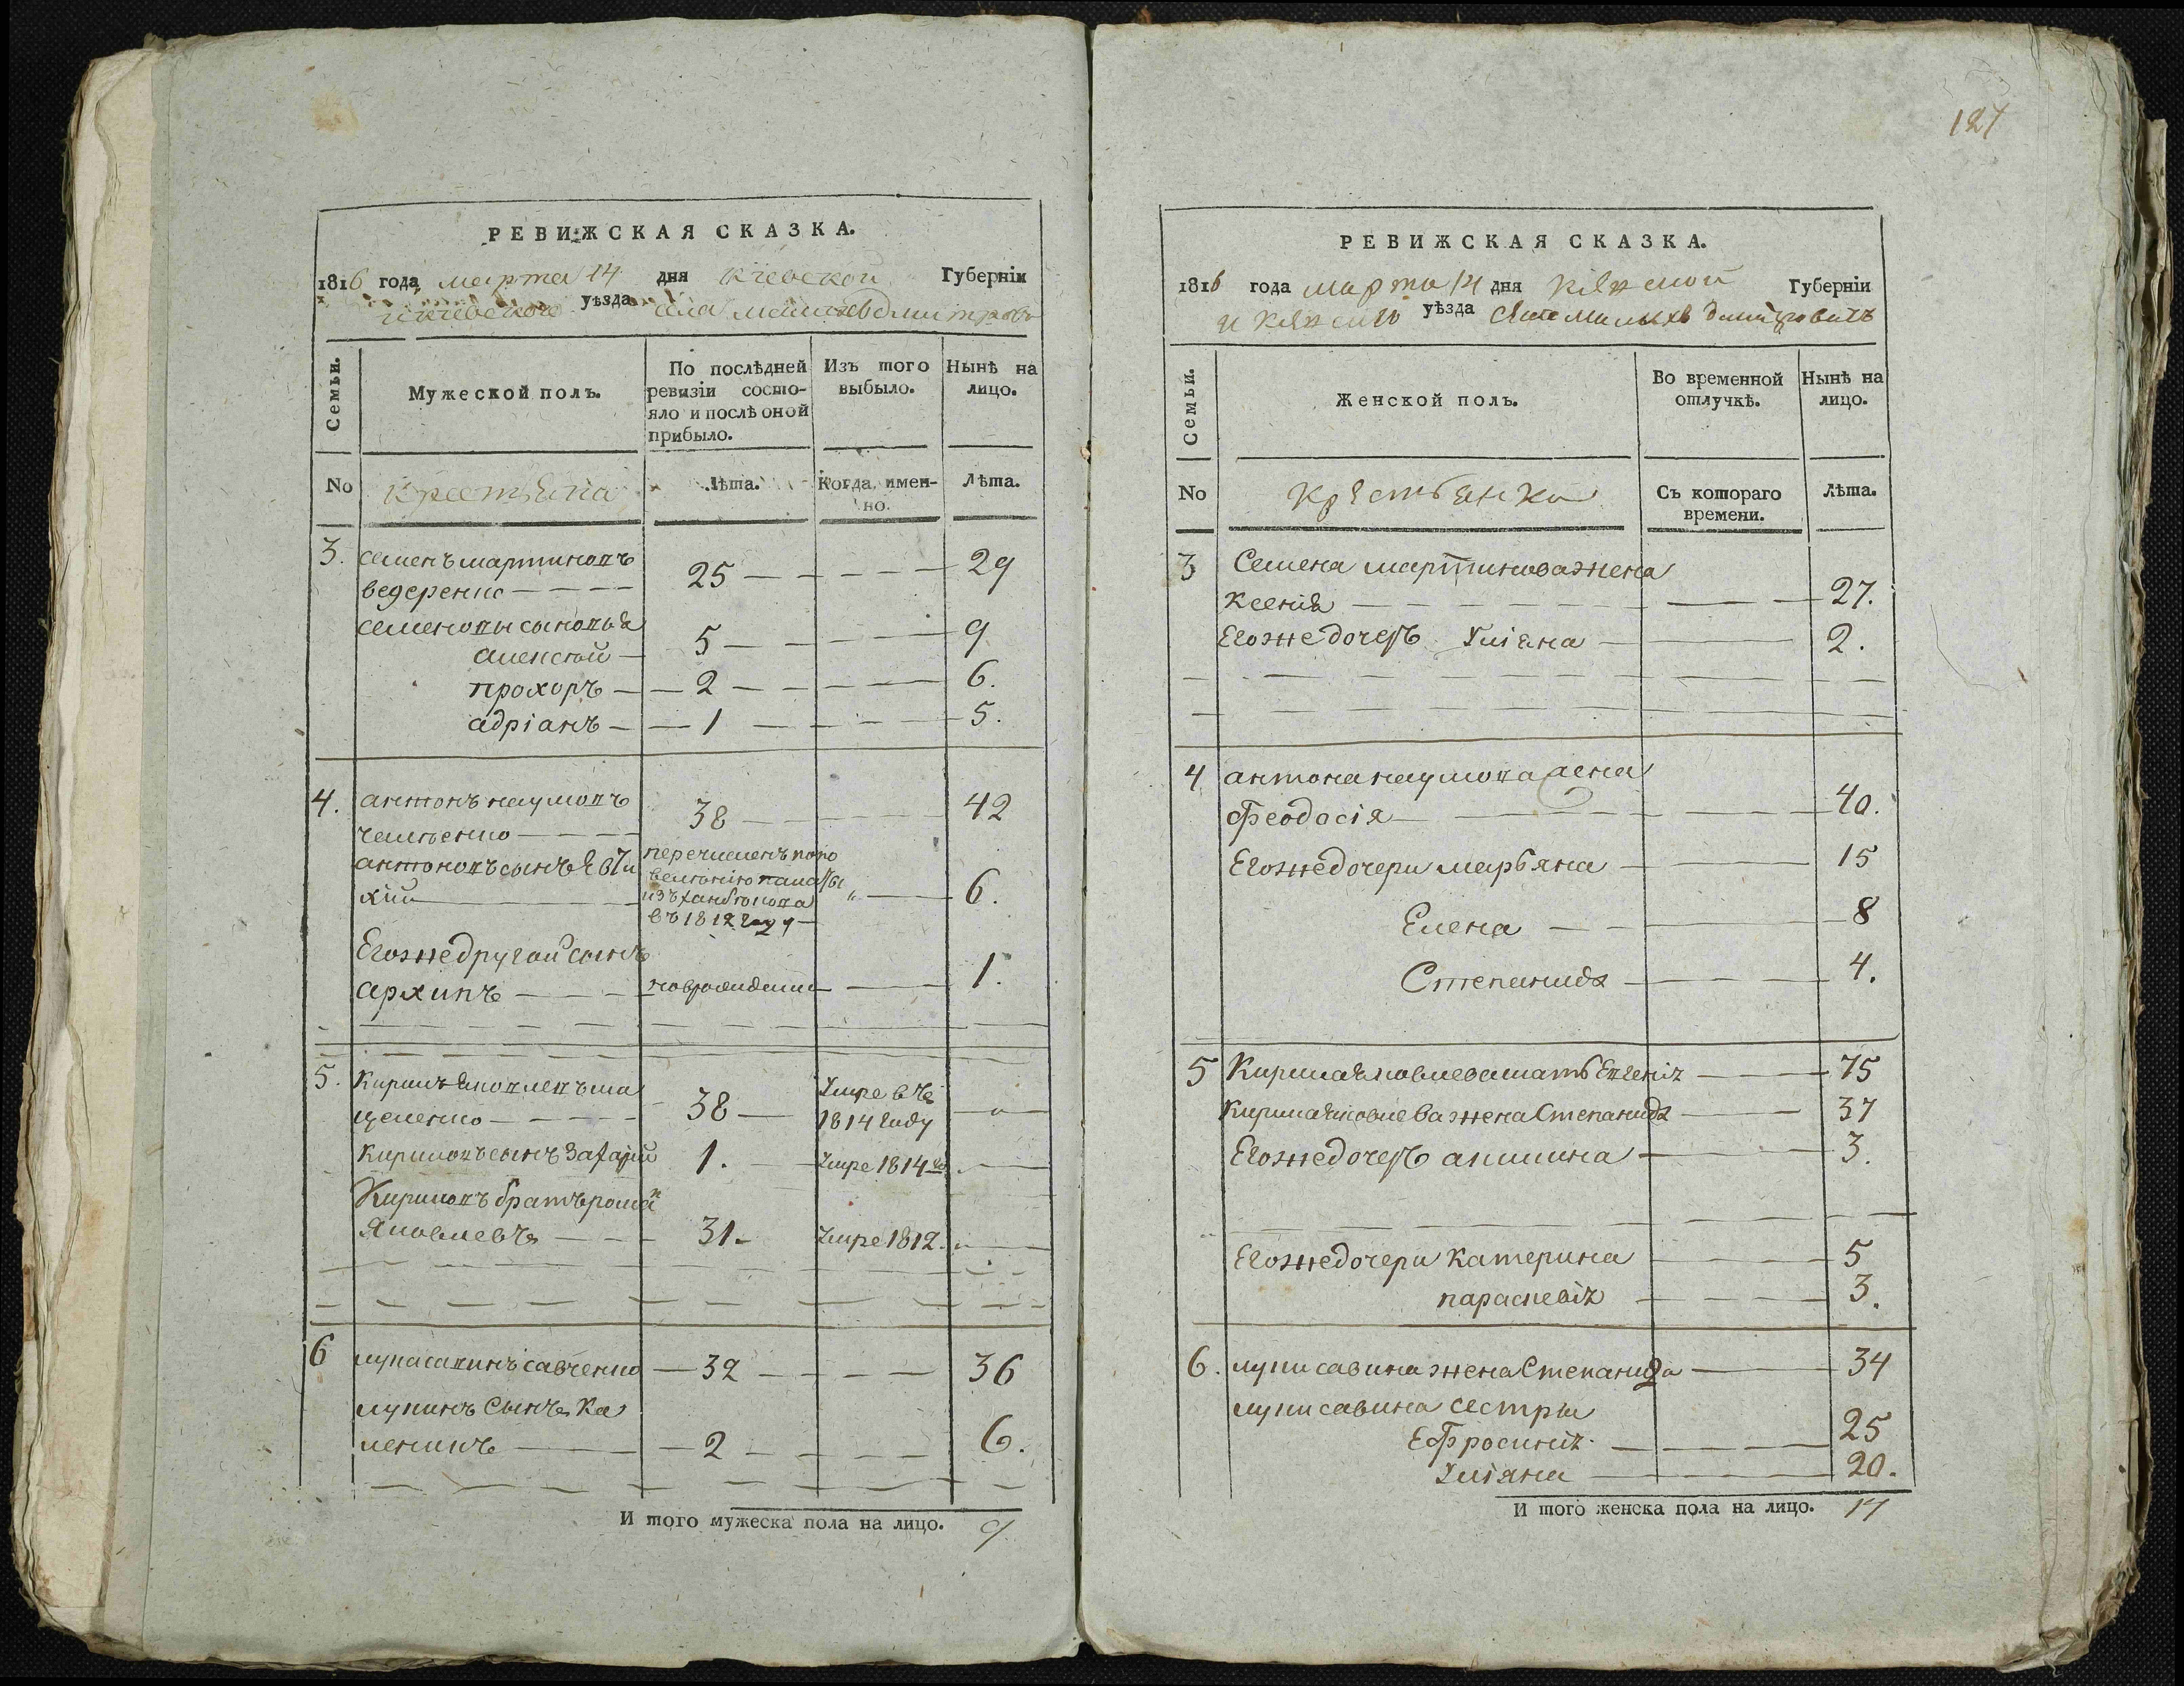 РЕВИЖСКАЯ СКАЗКА.
1816 года марта 14 дня Кіевской Губерніи
и кіевского уѣзда села
Семьи.
Мужеской полъ.
По послѣдней ревизіи состо-
яло и послѣ оной
прибыло.
Изъ того выбыло.
Нынѣ на лицо.
No
крестьяна
Лѣта.
Когда имен-
но.
Лѣта.
3. семенъ мартиновъ
ведеренко 25 29
семеновы сыновья
алексѣй 5 9
прохоръ 2 6.
адріанъ 1 5.
4. антонъ наумовъ 38 42
антоновъ сынъ Евти
хій
перечисленъ по по
велѣнію палаты
изъ
въ 1812 году
6.
Егоже другой сынъ
архипъ новорожденный 1.
5. Кирилъ Яковлевъ ма
щенко 38 Умре въ
1814 году
Кириловъ сынъ Захарій 1. Умре 1814 го
Кириловъ братъ роман
Яковлевъ 31. Умре 1812.
6 лука савинъ савченко 32 36
лукинъ сынъ Ка
леникъ 2 6.
И того мужеска пола на лицо. 9
127
РЕВИЖСКАЯ СКАЗКА.
1816 года марта 14 дня Кіевской Губерніи
и Кіевского уѣзда
Семьи.
Женской полъ.
Во временной отлучкѣ.
Нынѣ на лицо.
No
Крестьянки
Съ котораго
времени.
Лѣта.
3 Семена мартинова жена
Ксенія 27.
Егоже дочерь Уліяна 2.
4 антона наумова жена
Феодосія 40.
Егоже дочери марьяна 15
Елена 8
Степанида 4.
5 Кирила Яковлева мать Евгенія 75
Кирила Яковлева жена Степанида 37
Егоже дочерь акилина 3.
Егоже дочери Катерина 5
параскевія 3.
6. луки савина жена Степанида 34
луки савина сестры
Ефросинія 25
Уліяна 20.
И того женска пола на лицо. 17